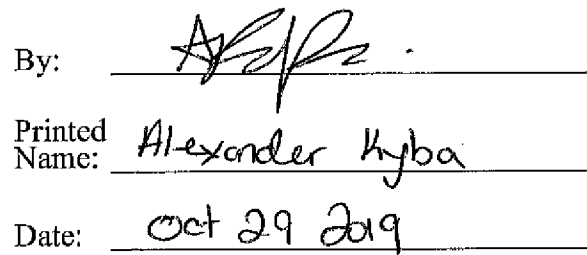 By:
Printed
Name: Alexander Kyba
Date: Oct 29 2019